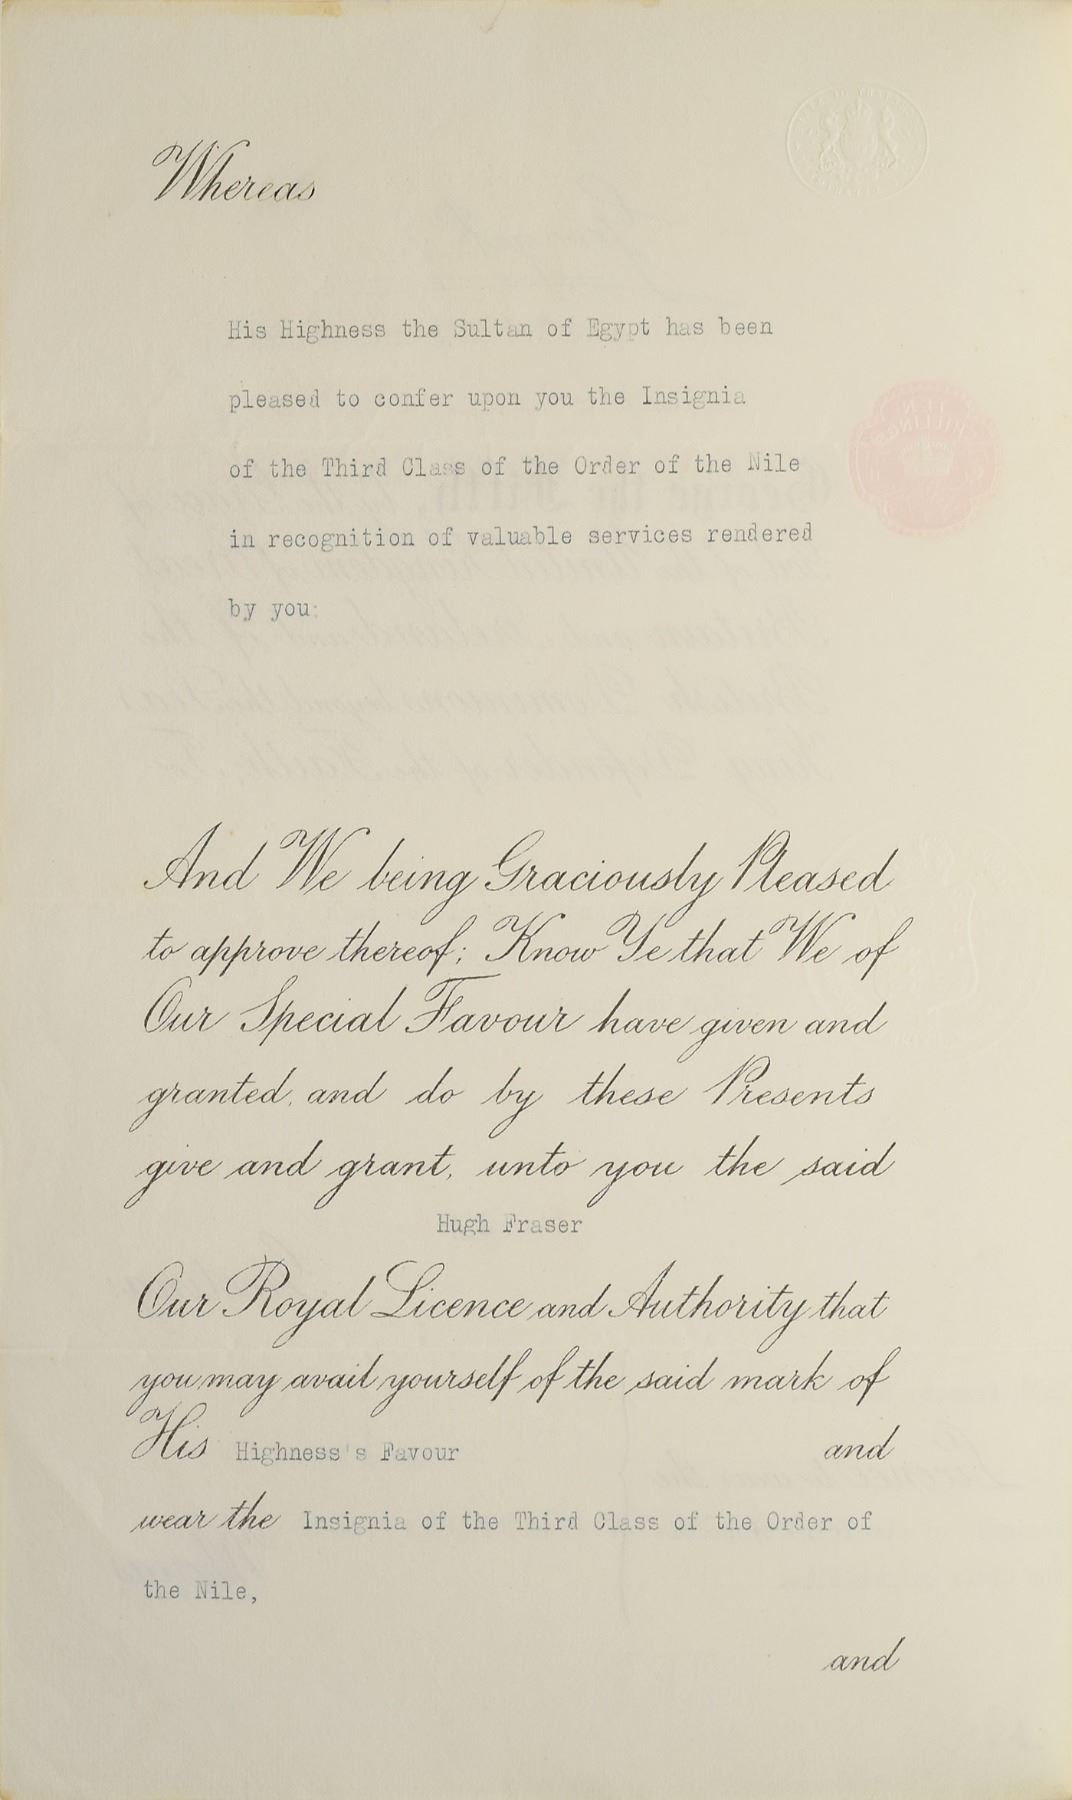 Whereas
His Highness the Sultan of Egypt has been
pleased to confer upon you the Insignia
of the Third Class of the Order of the Nile
in recognition of valuable services rendered
by you:
And We being Graciously Pleased
to approve thereof; Know Ye that We of
Our Special Favour have given and
granted, and do by these Presents
give and grant, unto you the said
Hugh Fraser
Our Royal Licence and Authority that
you may avail yourself of the said mark of
His Highness's Favour and
wear the Insignia of the Third Class of the Order of
the Nile,
and